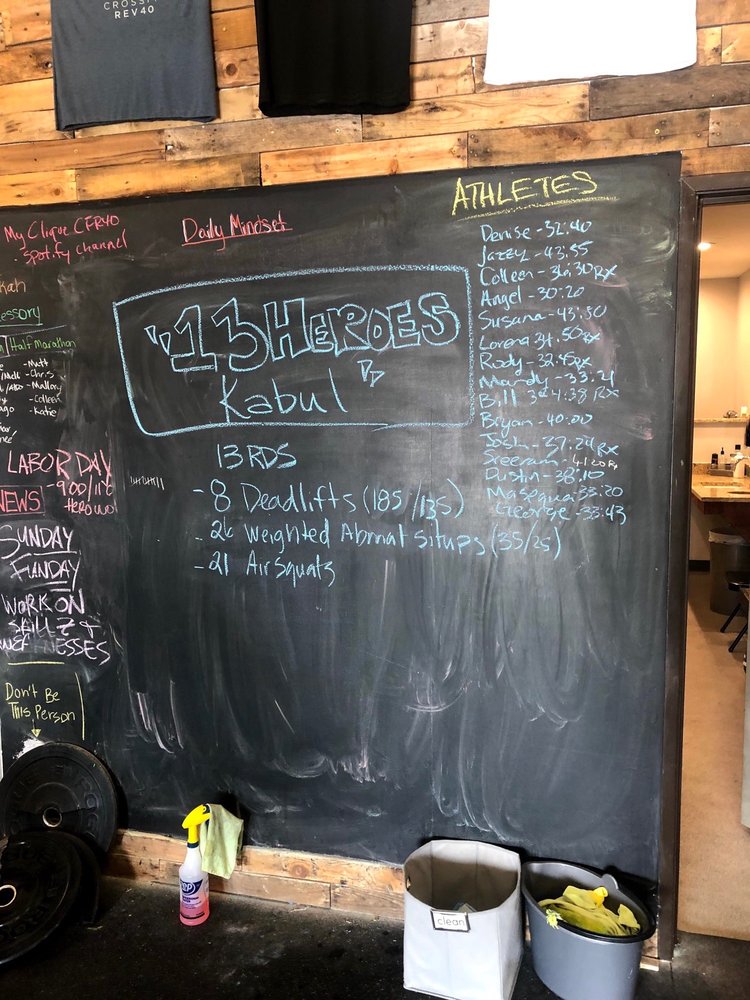 CROSSFIT
REV40
My Clique CFR40
Spotify channel
Daily Mindset
ATHLETES
"13 HEROES"
Kabul
13 RDS
- 8 Deadlifts (185/135)
- 26 Weighted Abmat Situps (35/25)
- 21 Air Squats
Denise - 32:40
Jazzy - 43:55
Colleen - 36:30 RX
Angel - 30:20
Susana - 43:50
Lorena 34:50 RX
Rody - 32:45 RX
Mandy - 33:21
Bill 34:38 RX
Bryan - 40:00
Josh - 27:24 RX
Sreeram - 41:20 RX
Dustin - 38:10
Masequa - 33:20
George - 33:43
/Half Marathon
- Matt
- Chris
- Mallory
- Colleen
- Katie
LABOR DAY
- 9:00/11:
HERO WO
NEWS
SUNDAY
FUNDAY
WORK ON
SKILLZ +
Don't Be
This Person
clean